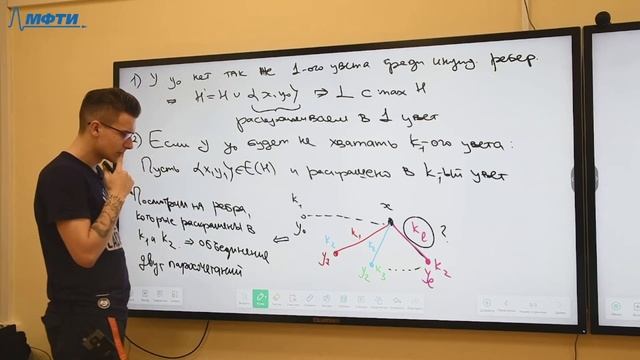 МФТИ
1) У y₀ нет так же 1-ого цвета среди инцид. ребер.
⇒ H' = H ∪ {x, y₀} ⇒ ⊥ с max H
раскрашиваем в 1 цвет
2) Если у y₀ будет не хватать k₁-ого цвета:
Пусть {x, y₁} ∈ E(H) и раскрашено в k₁-ый цвет
Посмотрим на ребра,
которые раскрашены в
k₁ и k₂ ⇒ объединение
двух паросочетаний
⇐
k₁
y₀
x
k₁
k₂
y₁
k₂
y₂
k₃
kℓ
?
k₂
yℓ